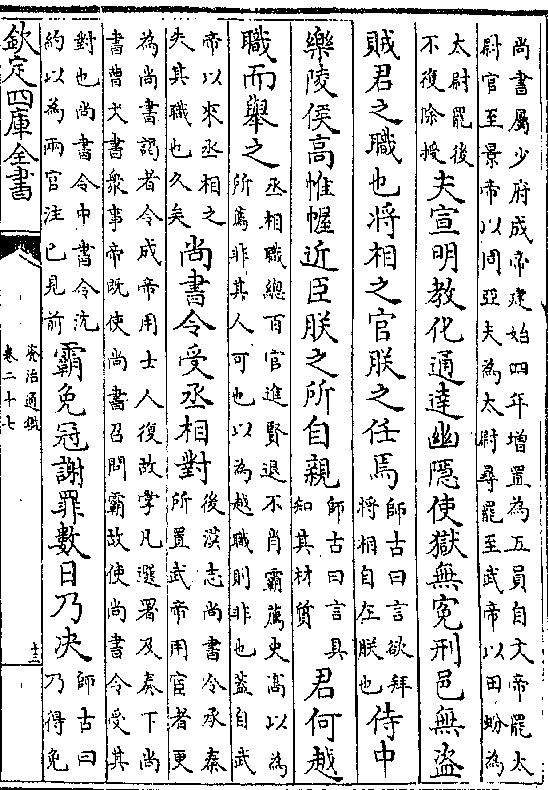 尚書屬少府成帝建始四年增置為五員自文帝罷太
尉官至景帝以周亞夫為太尉尋罷至武帝以田蚡為
太尉罷後
不復除授
夫宣明教化通達幽隱使獄無寃刑邑無盜
賊君之職也將相之官朕之任焉
師古曰言欲拜
將相自在朕也
侍中
樂陵侯高帷幄近臣朕之所自親
師古曰言具
知其材質
君何越
職而舉之
丞相職總百官進賢退不肖霸薦史高以為
所薦非其人可也以為越職則非也蓋自武
帝以來丞相之
失其職也久矣
尚書令受丞相對
後漢志尚書令承秦
所置武帝用宦者更
為尚書謁者令成帝用士人復故掌凡選署及奏下尚
書曹文書衆事帝既使尚書召問霸故使尚書令受其
對也尚書令中書令沈
約以為兩官注已見前
霸免冠謝罪數日乃決
師古曰
乃得免
欽定四庫全書
資治通鑑
卷二十七
十三